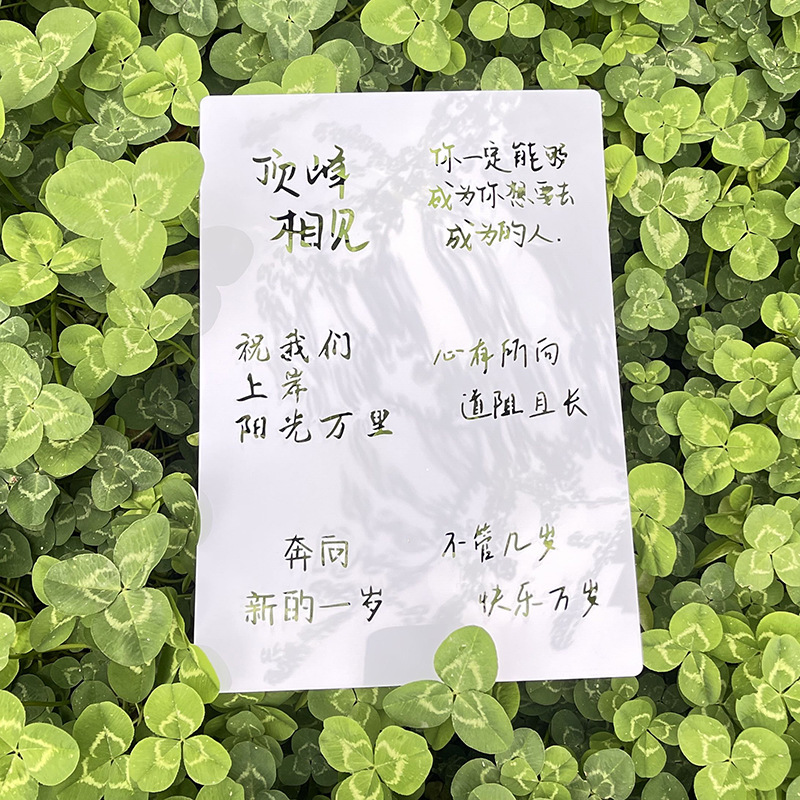 顶峰
相见
你一定能够
成为你想要去
成为的人.
祝我们
上岸
阳光万里
心有所向
道阻且长
奔向
新的一岁
不管几岁
快乐万岁